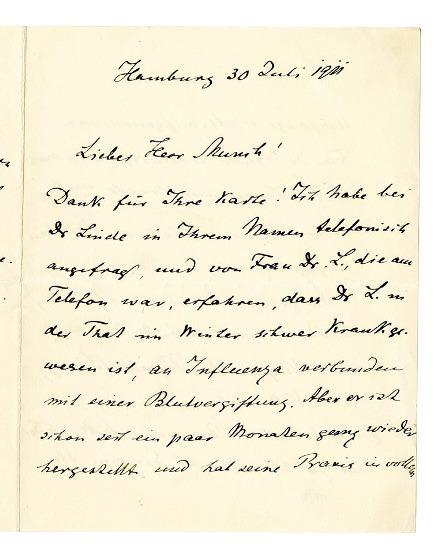 Hamburg 30 Juli 1911
Lieber Herr Munch!
Dank für Ihre Karte! Ich habe bei
Dr Linde in Ihrem Namen telefonisch
angefragt, und von Frau Dr. L., die am
Telefon war, erfahren, dass Dr L. in
der That im Winter schwer krank ge-
wesen ist, an Influenza verbunden
mit einer Blutvergiftung. Aber er ist
schon seit ein paar Monaten ganz wieder
hergestellt und hat seine Praxis in vollem